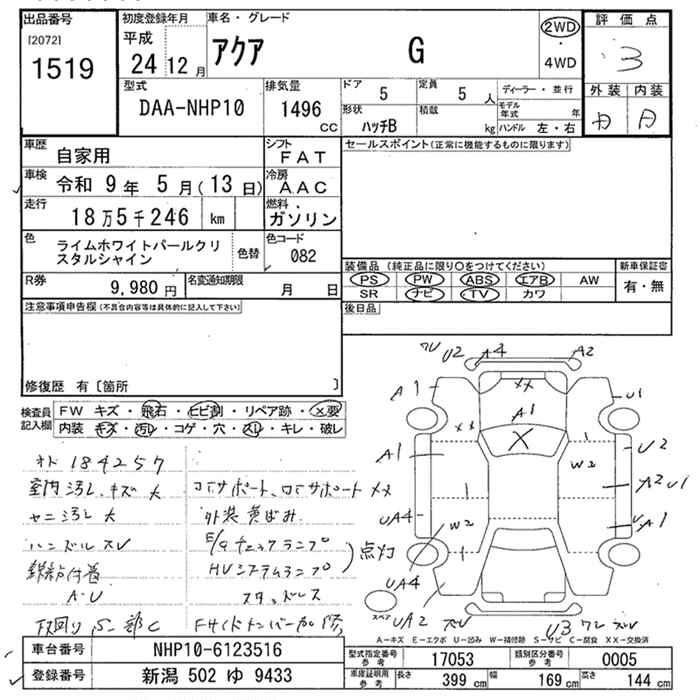 出品番号
[2072]
1519
初度登録年月
平成
24 12 月
車名・グレード
アクア G
2WD
・
4WD
評価点
3
外装 内装
型式
DAA-NHP10
排気量
1496 cc
ドア 5
定員 5 人
形状 ハッチB
積載 kg
ディーラー・並行
モデル年式 年
ハンドル 左・右
車歴 自家用
シフト FAT
車検 令和 9年 5月(13日)
冷房 AAC
走行 18万5千246 km
燃料 ガソリン
色 ライムホワイトパールクリスタルシャイン
色替
色コード 082
R券 9,980円
名変通知期限 月 日
セールスポイント(正常に機能するものに限ります)
装備品 (純正品に限り○をつけてください)
新車保証書
PS PW ABS エアB AW
SR ナビ TV カワ
有・無
後日品
注意事項申告欄(不具合内容等は具体的に記入して下さい)
修復歴 有〔箇所 〕
検査員記入欄
FW キズ・飛石・ヒビ割・リペア跡・X要
内装 キズ・汚レ・コゲ・穴・スレ・キレ・破レ
オド 184257
室内汚レ、キズ大 コアサポート、ロアサポートXX
ヤニ汚レ大 外装黄ばみ
ハンドルスレ E/gチェックランプ
HVシステムランプ
点灯
AU スタッドレス
下回りS一部C
U2 A4 A2
A1 XX U1
A1
A1 XX X U2
W2
A2 U1
UA4 W2 A1
UA4
スペア
UA2 U3
A-キズ E-エクボ U-凹み W-補修跡 S-サビ C-腐食 XX-交換済
車台番号 NHP10-6123516
登録番号 新潟 502 ゆ 9433
型式指定番号 参考 17053
類別区分番号 参考 0005
車庫証明用 参考
長さ 399 cm
幅 169 cm
高さ 144 cm